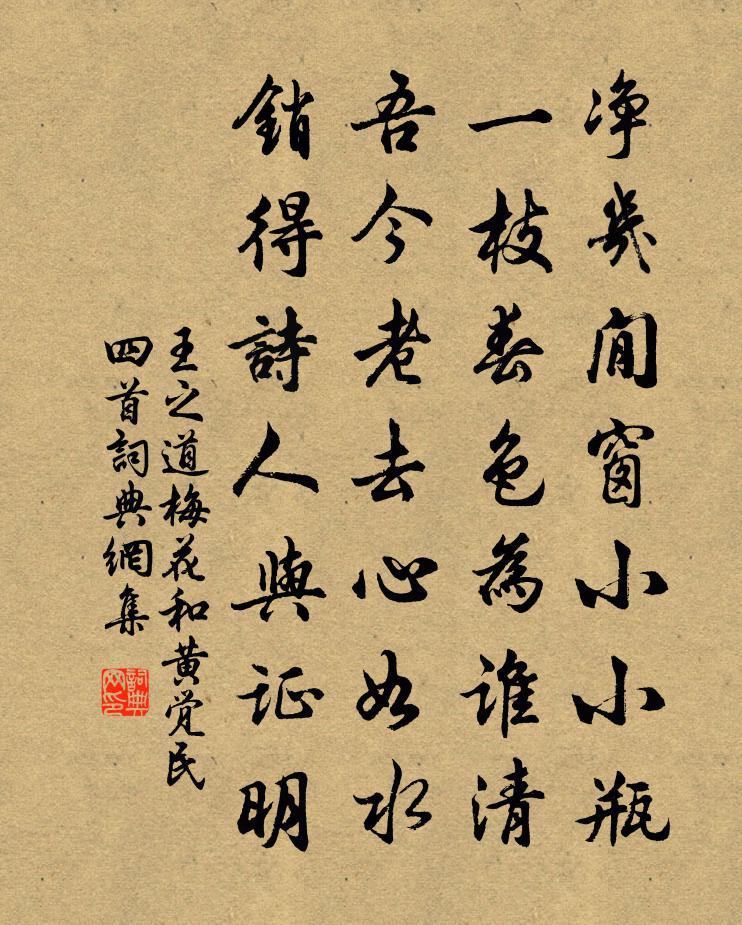 净幾閒窗小小瓶
一枝春色為誰清
吾今老去心如水
銷得詩人與证明
王之道梅花和黄觉民
四首詞典網集
詞典
网印